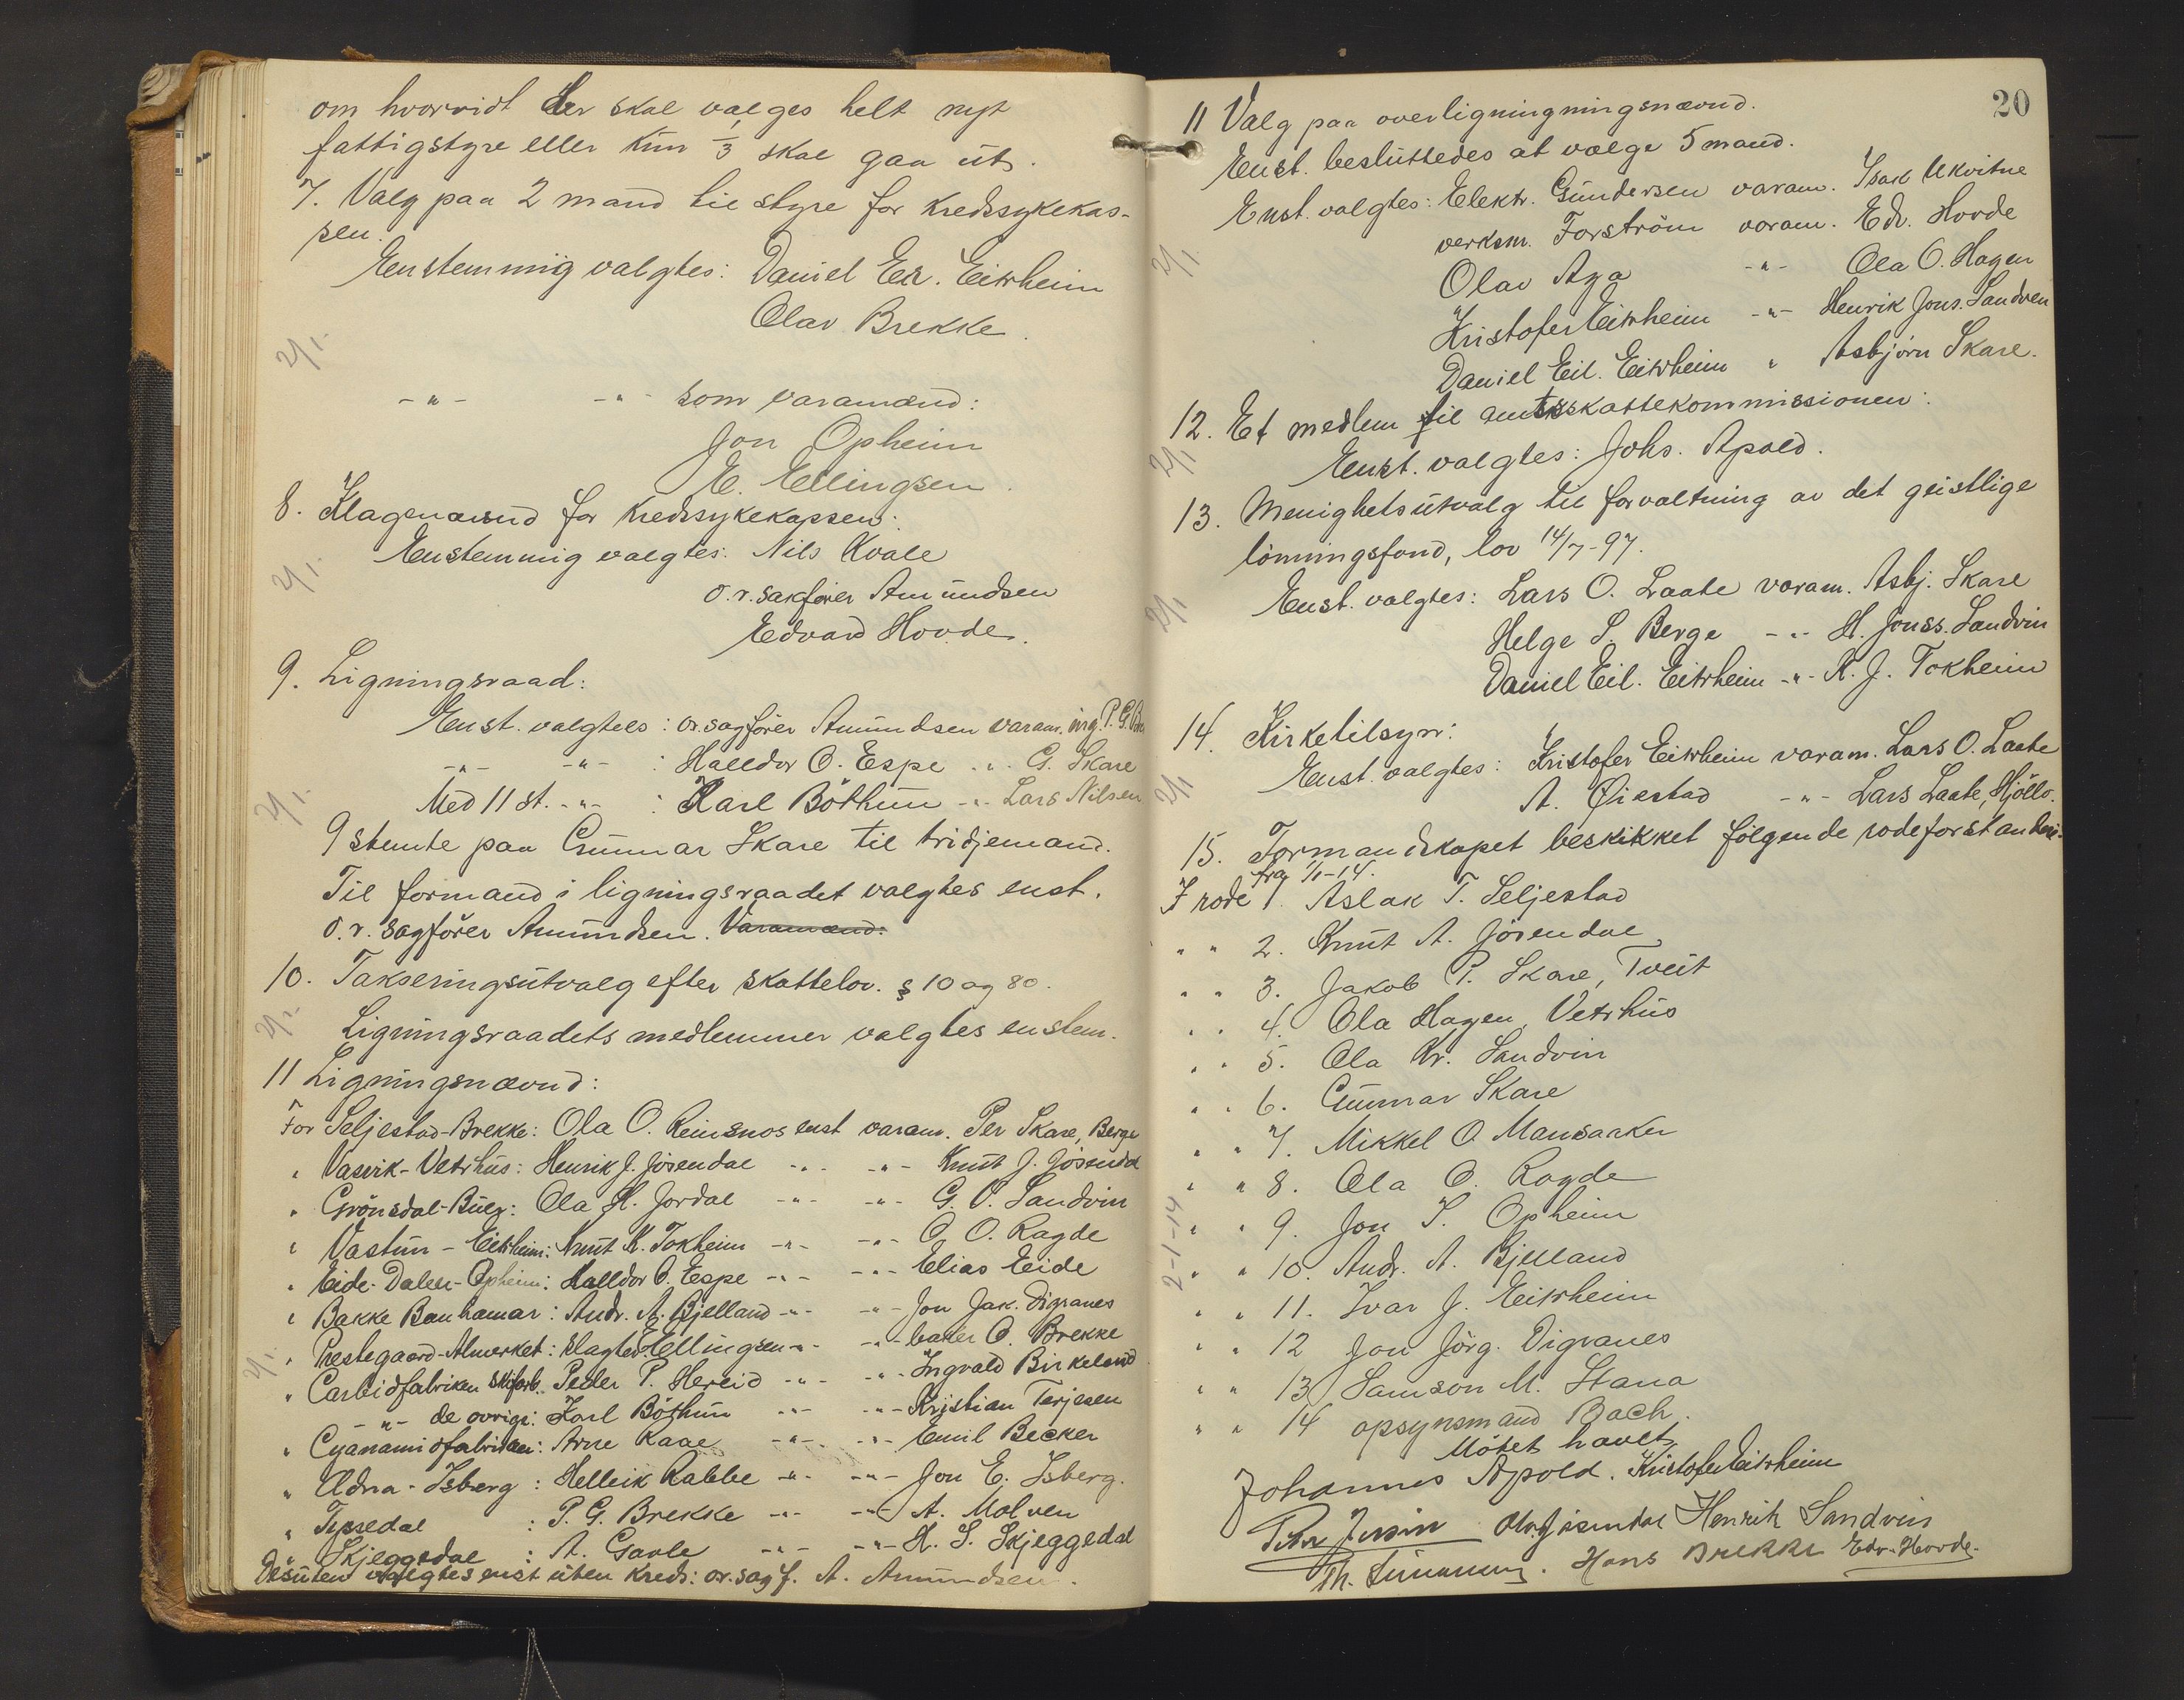 om hvorvidt der skal vælges helt nyt
fattigstyre eller kun 1/3 skal gaa ut.
7. Valg paa 2 mand til styre for kredssykekas-
sen.
Enstemmig valgtes: Daniel Er. Eitrheim
Olav Brekke.
2/1.
-"- -"- som varamænd:
Jon Opheim
E. Ellingsen.
8. Klagenævnd for kredssykekassen:
2/1. Enstemmig valgtes: Nils Kvale
o.r.sakfører Amundsen
Edvard Hovde.
9. Ligningsraad:
Enst. valgtes: or.sagfører Amundsen varam. ing. P. G.
-"- -"- : Halldor O. Espe -"- G. Skare
2/1. Med 11 st. -"- : Karl Böthun -"- Lars Nilsen
9 stemte paa Gunnar Skare til tridjemand.
Til formand i ligningsraadet valgtes enst.
o.r. sagfører Amundsen. Varamænd:
10. Takseringsutvalg efter skattelov. § 10 og 80.
2/1. Ligningsraadets medlemmer valgtes enstem.
11 Ligningsnævnd:
For Seljestad-Brekke: Ola O. Reinsnos enst varam. Per Skare, Berge
" Vasvik-Vetrhus: Henrik J. Jösendal -"- -"- Knut J. Jösendal
" Grönsdal-Buer: Ola H. Jordal -"- -"- G. O. Sandvin
" Vastun-Eitrheim: Knut K. Tokheim -"- -"- O. O. Ragde
" Eide-Dalen-Opheim: Halldor O. Espe -"- -"- Elias Eide
" Bakke Banhamar: Andr. A. Bjelland -"- -"- Jon Jak. Digranes
" Prestegaard-Almerket: slagter Ellingsen -"- -"- baker O. Brekke
2/1. " Carbidfabriken skifarb. Peder P. Hereid -"- -"- Ingvald Birkeland
-"- de ovrige: Karl Böthun -"- -"- Kristian Terjesen
" Cyanamidfabriken: Arne Kaae -"- -"- Emil Becker
" Udna-Isberg: Helleik Rabbe -"- -"- Jon E. Isberg.
" Tyssedal : P. G. Brekke -"- -"- A. Molven
" Skjeggedal : A. Gavle -"- -"- H. S. Skjeggedal
Desuten valgtes enst uten kreds: or.sagf. A. Amundsen.
20
11 Valg paa overligningningsnævnd.
Enst. besluttedes at vælge 5 mand.
2/1. Enst. valgtes: Elektr. Gundersen varam. Isak Ukvitne
verksm. Forström varam. Edv. Hovde
Olav Aga -"- Ola O. Hagen
Kristofer Eitrheim -"- Henrik Jons. Sandven
Daniel Eil. Eitrheim " Asbjörn Skare.
12. Et medlem til amtsskattekommissionen:
2/1 Enst. valgtes: Johs. Apold.
13. Menighetsutvalg til forvaltning av det geistlige
lönningsfond, lov 14/7-97.
2/1 Enst. valgtes: Lars O. Laate varam. Asbj. Skare
Helge S. Berge -"- H. Jonss. Sandvin
Daniel Eil. Eitrheim -"- K. J. Tokheim
14. Kirketilsyn:
2/1 Enst. valgtes: Kristofer Eitrheim varam. Lars O. Laate
A. Öiestad -"- Lars Laate, Hjöllo.
15. Formandskapet beskikket følgende rodeforstandere
fra 1/1-14.
I rode 1. Aslak T. Seljestad
" " 2. Knut A. Jösendal
" " 3. Jakob P. Skare, Tveit
" " 4. Ola Hagen, Vetrhus
" " 5. Ola Kr. Sandvin
" " 6. Gunnar Skare
" " 7. Mikkel O. Mansaaker
" " 8. Ola O. Ragde
2-1-14 " " 9. Jon S. Opheim
" " 10. Andr. A. Bjelland
" " 11. Ivar J. Eitrheim
" " 12 Jon Jörg. Digranes
" " 13 Samson M. Stana
" " 14 opsynsmand Bach.
Mötet hævet
Johannes Apold. Kristofer Eitrheim
Olav Jösendal Henrik Sandvin
Hans Brekke Edv. Hovde.